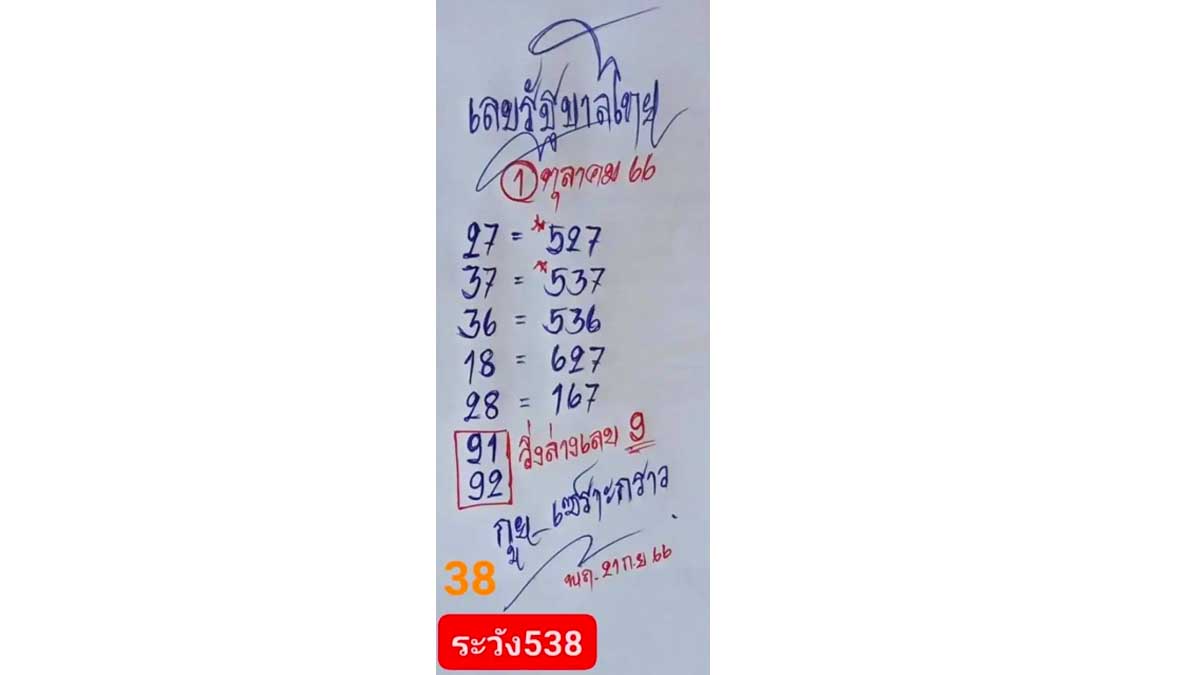 เลขรัฐบาลไทย
1 ตุลาคม 66
27 = *527
37 = *537
36 = 536
18 = 627
28 = 167
91 วิ่งล่างเลข 9
92
กูย_เซราะกราว
พฤ. 21 ก.ย 66
38
ระวัง538